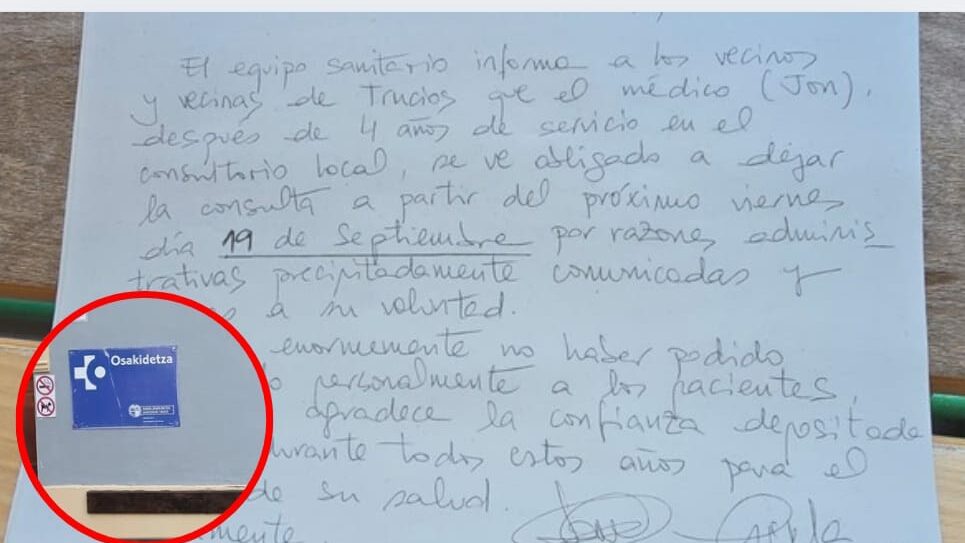 El equipo sanitario informa a los vecinos
y vecinas de Trucios que el médico (Jon),
después de 4 años de servicio en el
consultorio local, se ve obligado a dejar
la consulta a partir del próximo viernes
día 19 de Septiembre por razones adminis
trativas precipitadamente comunicadas y
a su voluntad.
enormemente no haber podido
personalmente a los pacientes,
agradece la confianza depositada
durante todos estos años para el
de su salud.
amente
Osakidetza